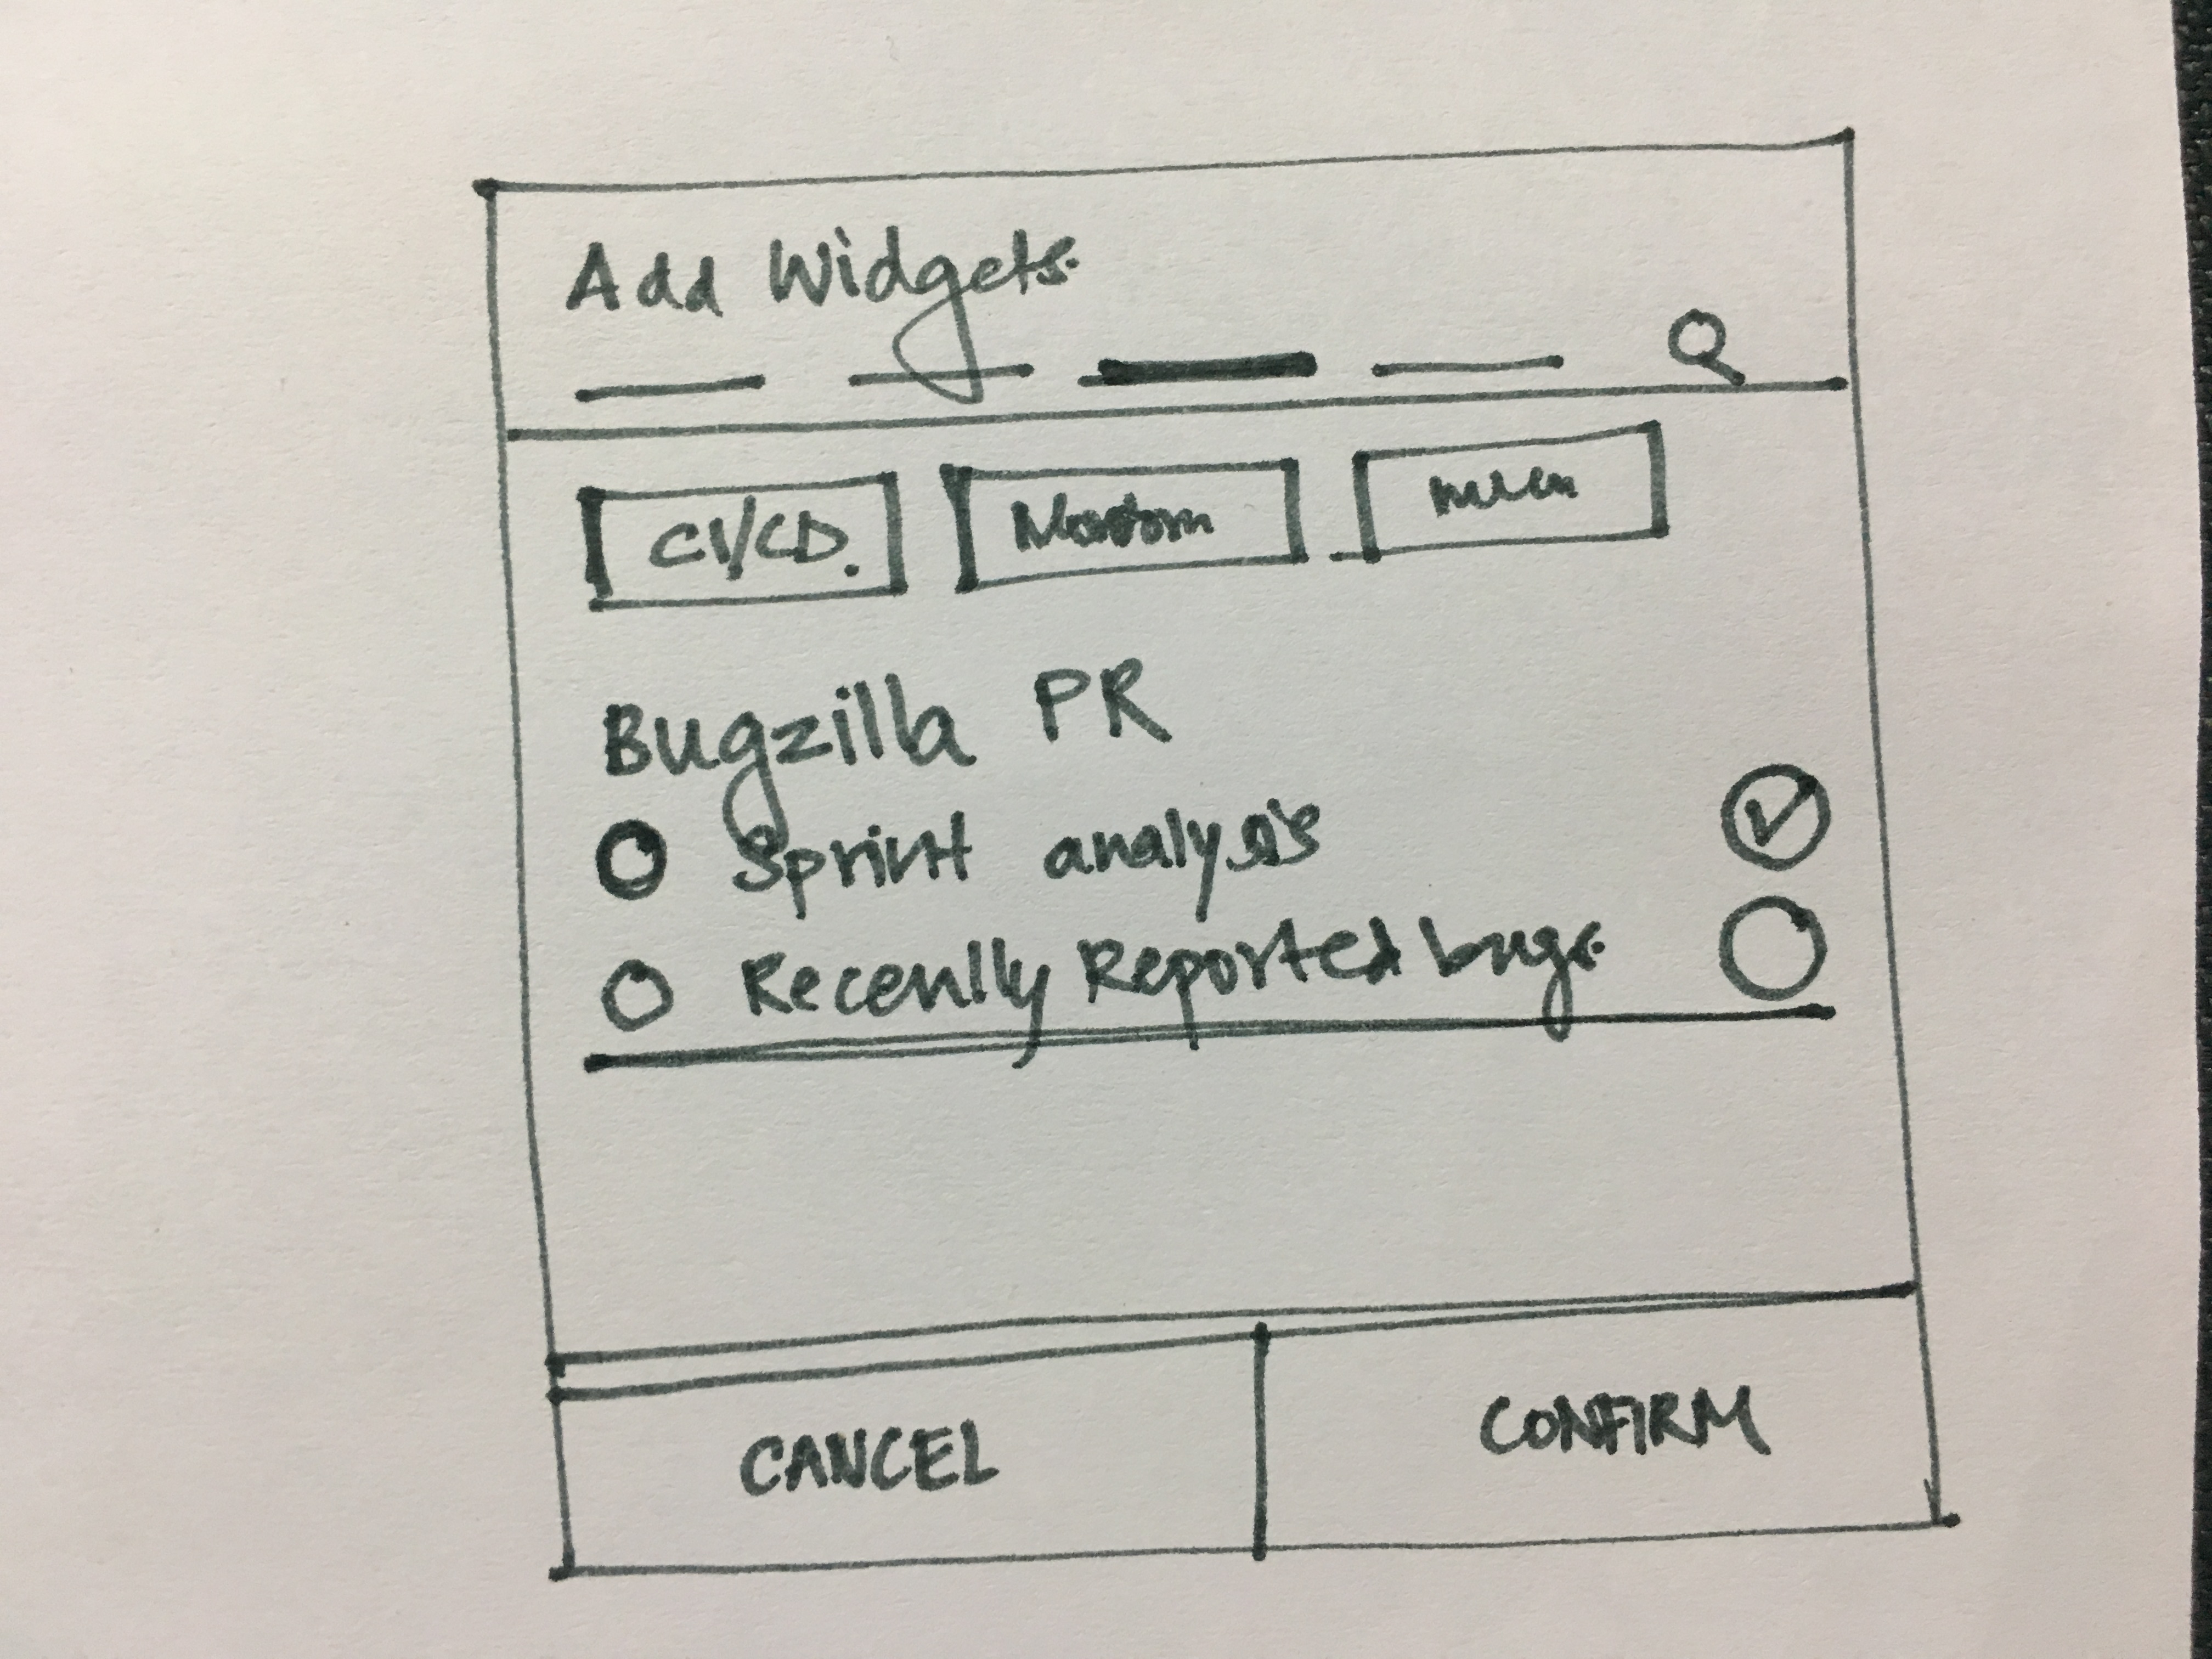 Add Widgets.
CI/CD.
Bugzilla PR
Sprint analysis
Recently Reported bugs.
CANCEL
CONFIRM